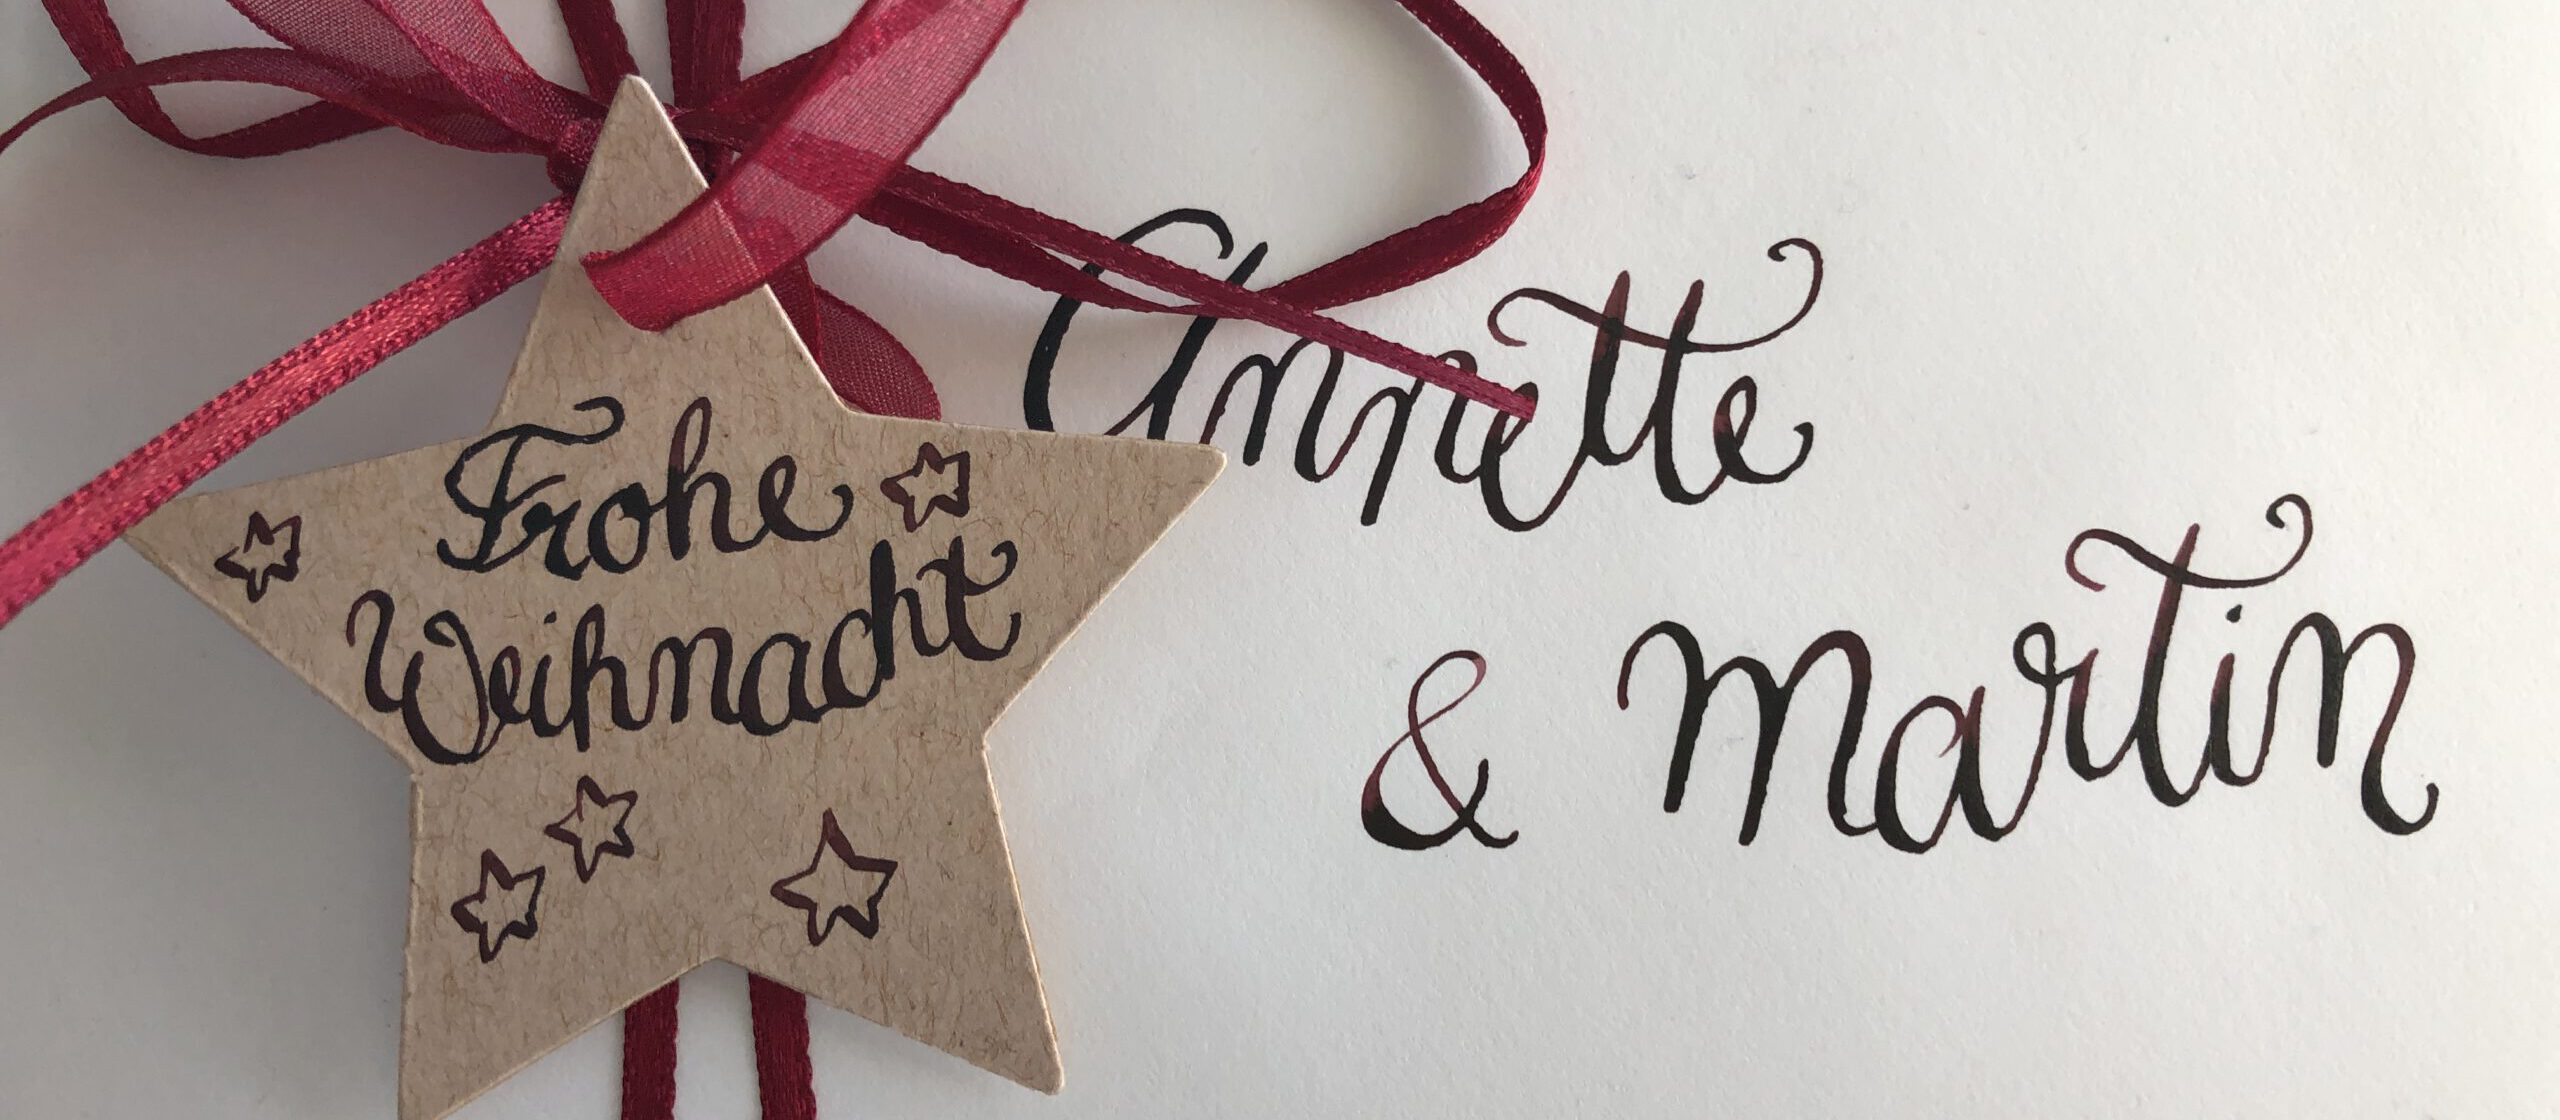 Frohe
Weihnacht
Annette
& Martin